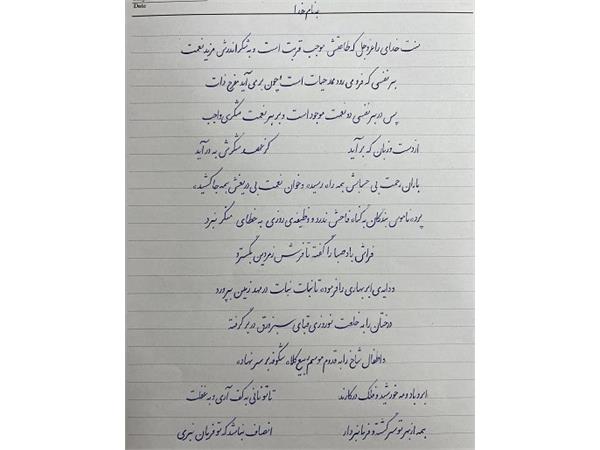 Date
بنام خدا
منت خدای را عزوجل که طاعتش موجب قربت است و به شکر اندرش مزید نعمت
هر نفسی که فرو می رود ممد حیات است و چون بر می آید مفرح ذات
پس در هر نفسی دو نعمت موجود است و بر هر نعمت شکری واجب
از دست و زبان که برآید کز عهده شکرش به درآید
باران رحمت بی حسابش همه را رسیده و خوان نعمت بی دریغش همه جا کشیده
پرده ناموس بندگان به گناه فاحش ندرد و وظیفه ی روزی به خطای منکر نبرد
فراش باد صبا را گفته تا فرش زمردین بگسترد
و دایه ی ابر بهاری را فرموده تا نبات نبات در مهد زمین بپرورد
درختان را به خلعت نوروزی قبای سبز ورق در بر گرفته
و اطفال شاخ را به قدوم موسم ربیع کلاه شکوفه بر سر نهاده
ابر و باد و مه خورشید و فلک در کارند تا تو نانی به کف آری و به غفلت
همه از بهر تو سرگشته و فرمانبردار انصاف نباشد که تو فرمان نبری